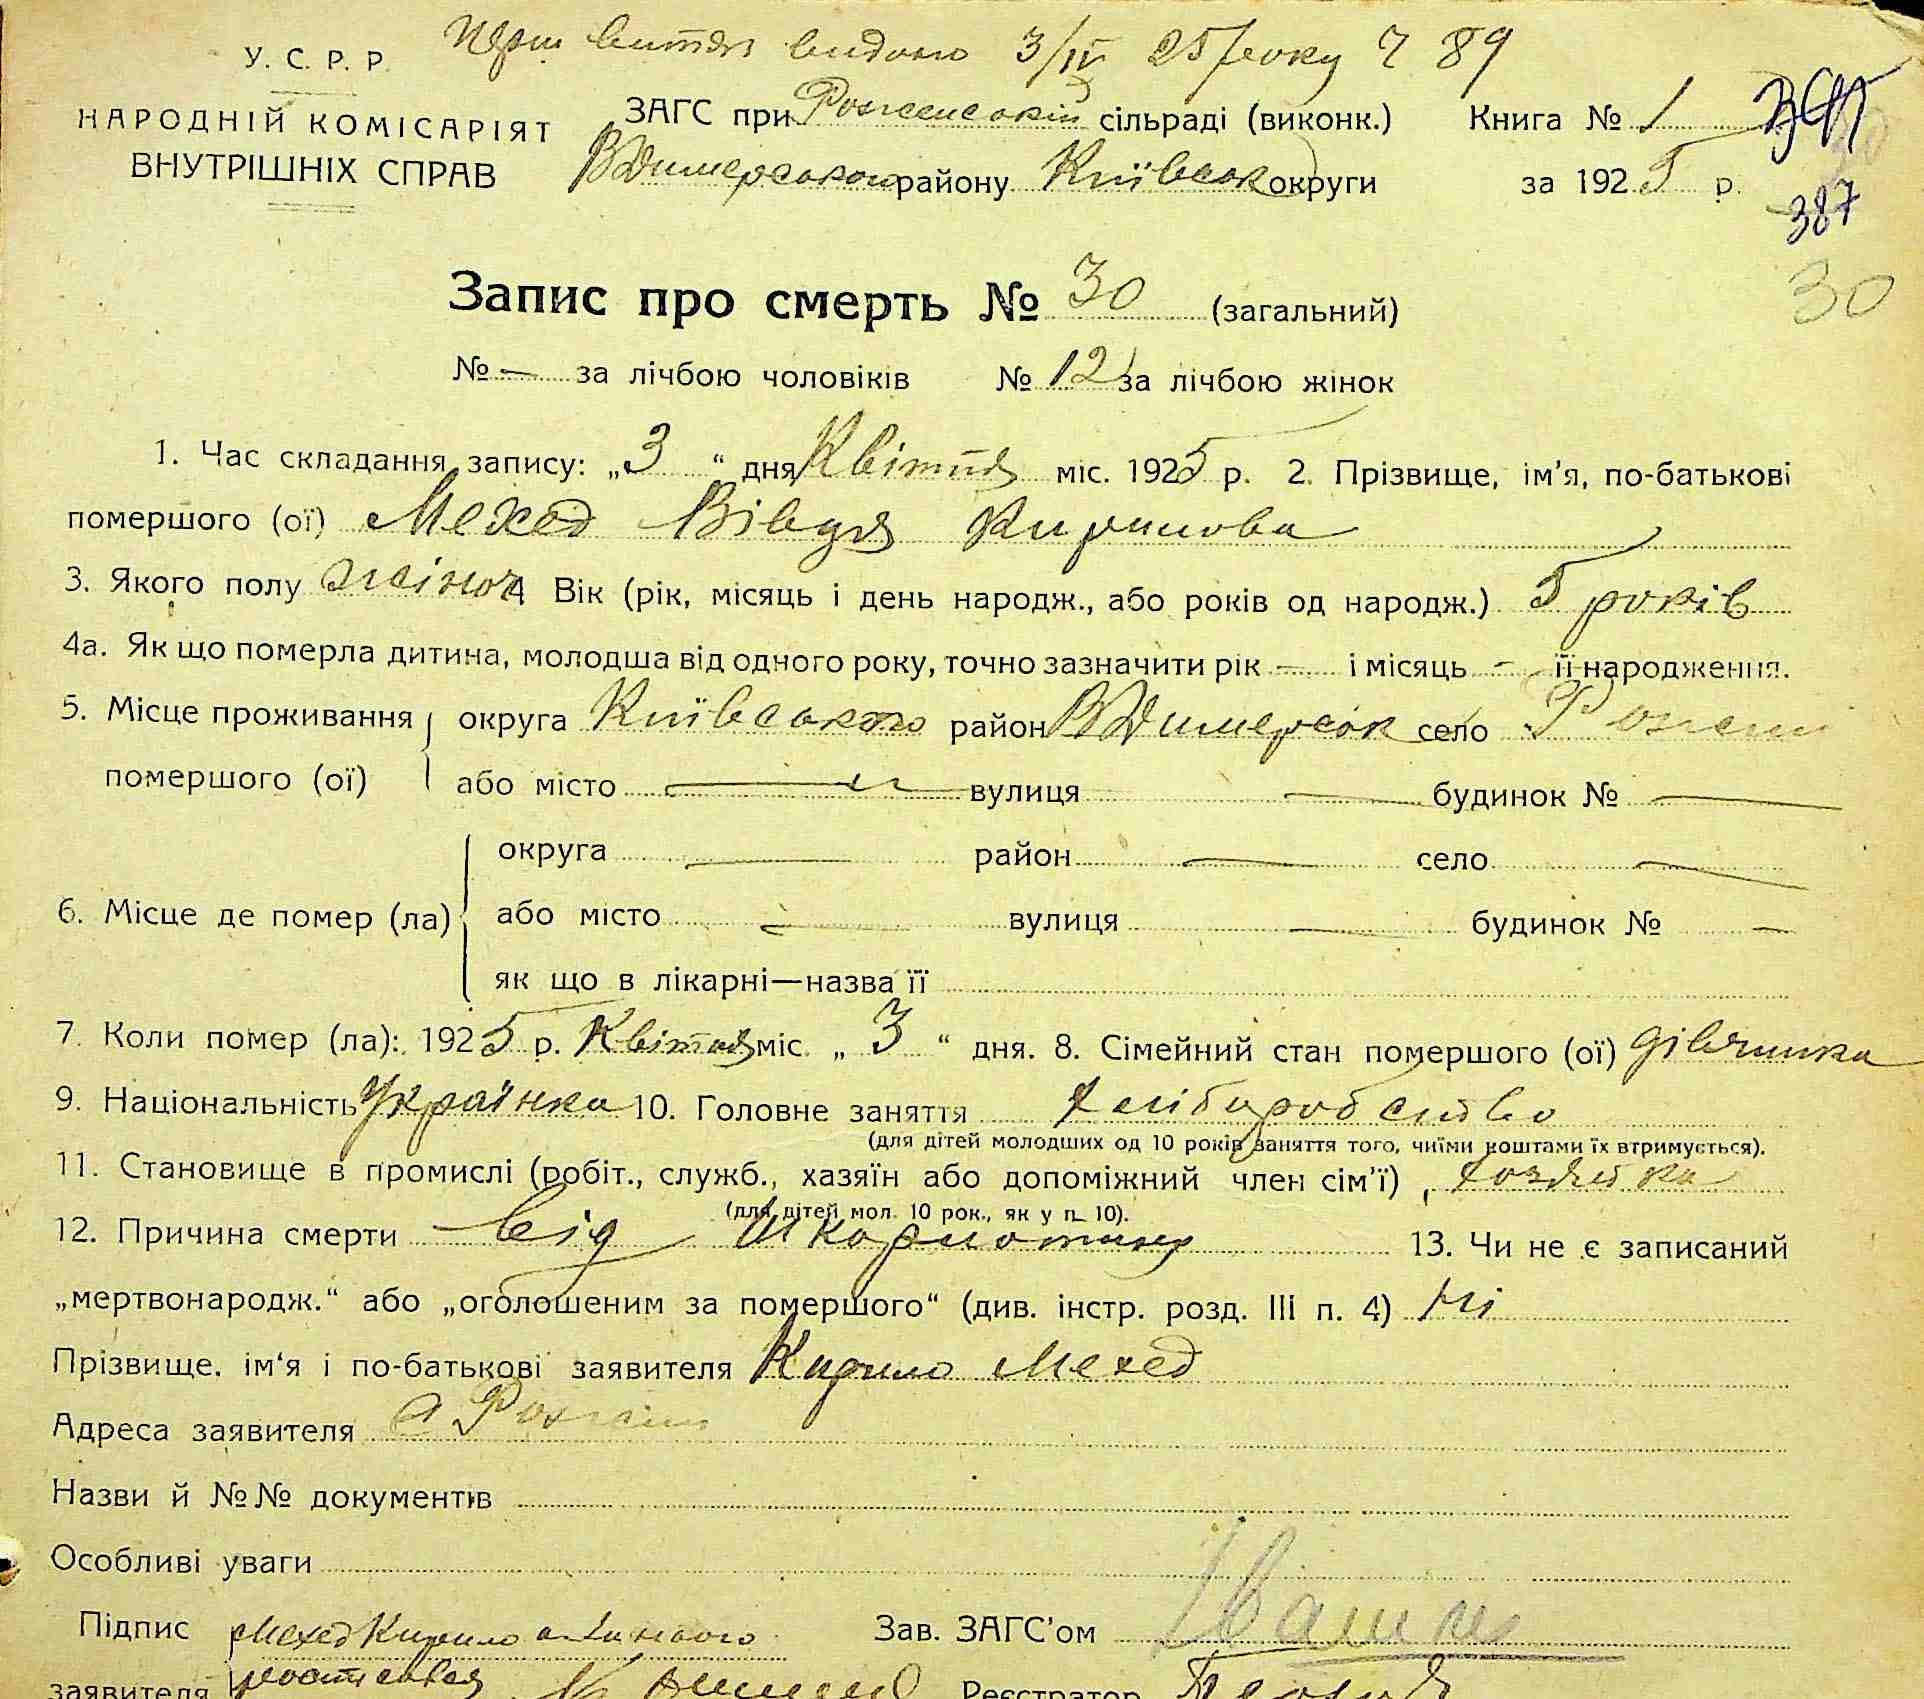 Перш витяг видано 3/IV 25 року Ч 89
У. С. Р. Р.
НАРОДНІЙ КОМІСАРІЯТ
ВНУТРІШНІХ СПРАВ
ЗАГС при Роженській сільраді (виконк.) Книга № 1
ВДимерського району Київськ округи за 1925 р.
387
30
Запис про смерть № 30 (загальний)
№ — за лічбою чоловіків № 12 за лічбою жінок
1. Час складання запису: „3“ дня Квітня міс. 1925 р. 2. Прізвище, ім'я, по-батькові
помершого (ої) Мехед Вівдя Кирилова
3. Якого полу жіноч 4 Вік (рік, місяць і день народж., або років од народж.) 5 років
4а. Як що померла дитина, молодша від одного року, точно зазначити рік — і місяць — її народження.
5. Місце проживання округа Київського район ВДимерськ село Рожни
помершого (ої) або місто — вулиця — будинок № —
округа — район — село —
6. Місце де помер (ла) або місто — вулиця — будинок № —
як що в лікарні—назва її
7. Коли помер (ла): 1925 р. Квітня міс. „3“ дня. 8. Сімейний стан помершого (ої) дівчинка
9. Національність Українка 10. Головне заняття Хліборобство
(для дітей молодших од 10 років заняття того, чиїми коштами їх втримується).
11. Становище в промислі (робіт., служб., хазяїн або допоміжний член сім'ї), хозяйка
(для дітей мол. 10 рок., як у п. 10).
12. Причина смерти від Шкорлотини 13. Чи не є записаний
„мертвонародж.“ або „оголошеним за помершого“ (див. інстр. розд. III п. 4) Ні
Прізвище, ім'я і по-батькові заявителя Кирило Мехед
Адреса заявителя с Рожни
Назви й №№ документів
Особливі уваги
Підпис Мехед Кирило Зав. ЗАГС'ом
заявителя Реєстратор